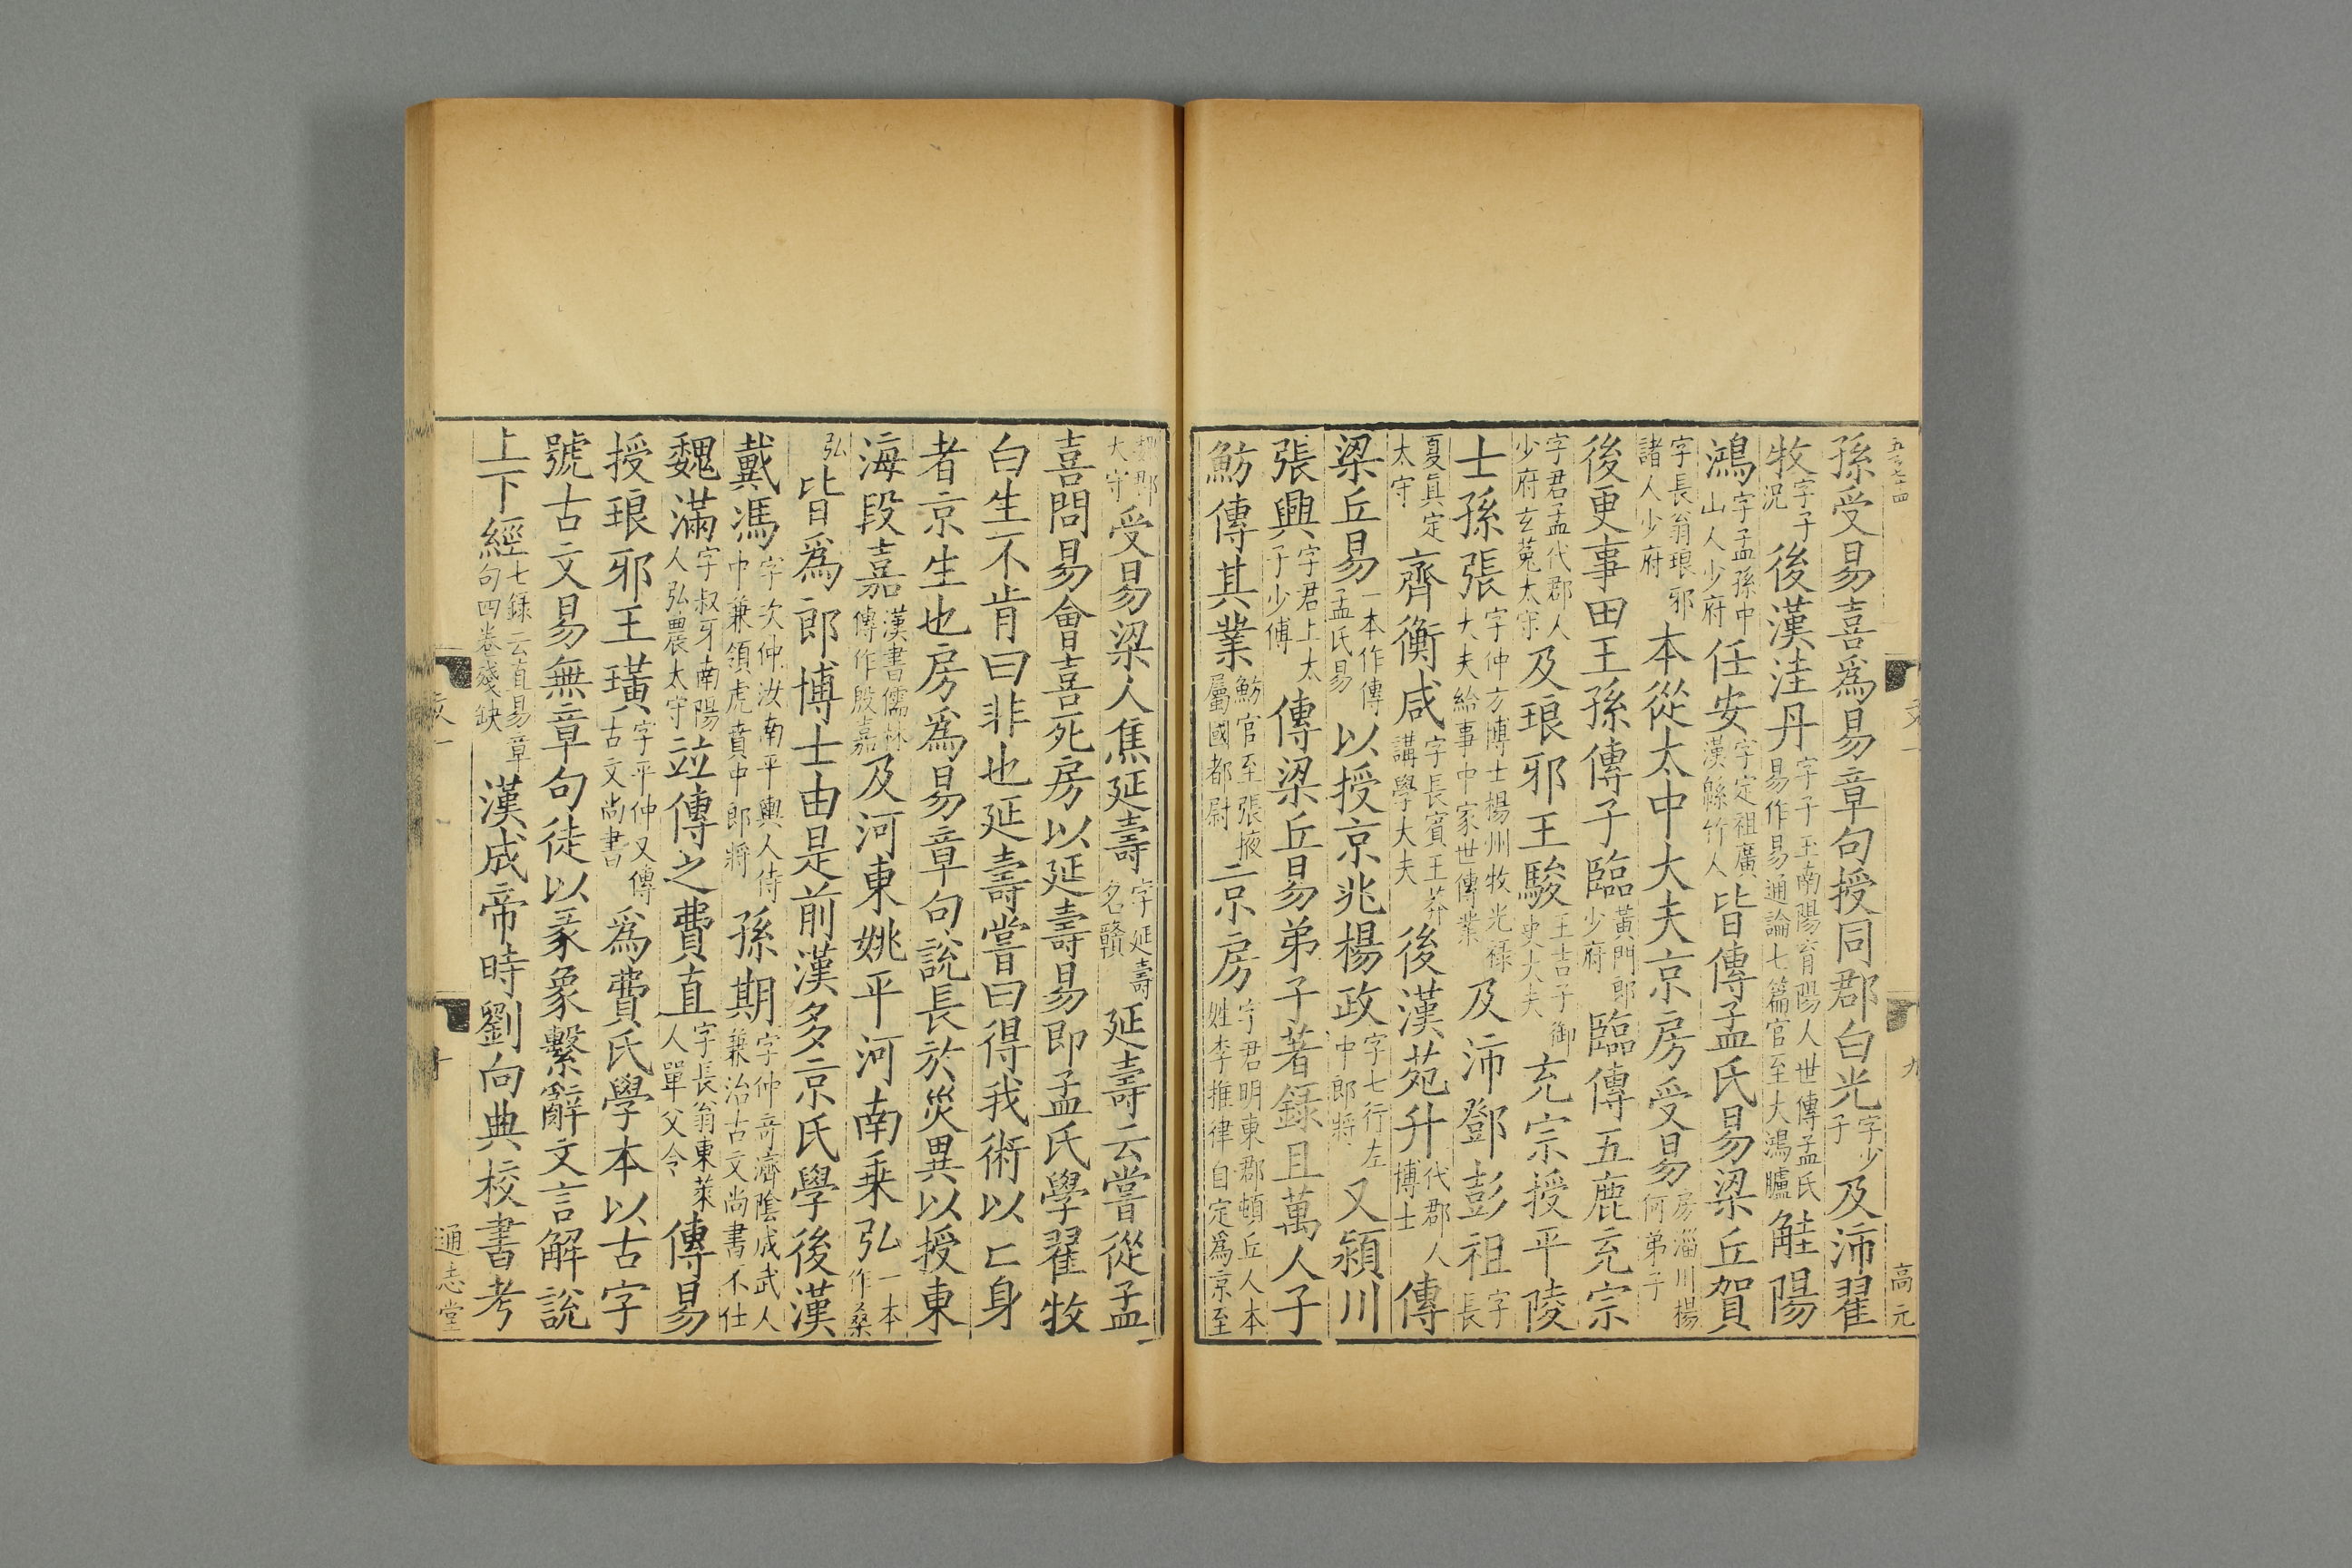 孫受易喜爲易章句授同郡白光字少子及沛翟
牧字子況後漢洼丹字子玉南陽育陽人世傳孟氏易作易通論七篇官至大鴻臚觟陽
鴻字子孟孫中山人少府任安字定祖廣漢緜竹人皆傳孟氏易梁丘賀
字長翁琅邪諸人少府本從太中大夫京房受易房淄川楊何弟子
後更事田王孫傳子臨黃門郎少府臨傳五鹿充宗
字君孟代郡人少府玄菟太守及琅邪王駿王吉子御史大夫充宗授平陵
士孫張字仲方博士楊州牧光祿大夫給事中家世傳業及沛鄧彭祖字長
夏真定太守齊衡咸字長賓王莽講學大夫後漢范升代郡人博士傳
梁丘易一本作傳孟氏易以授京兆楊政字子行左中郎將又潁川
張興字君上太子少傅傳梁丘易弟子著錄且萬人子
魴傳其業魴官至張掖屬國都尉京房字君明東郡頓丘人本姓李推律自定爲京至
高元
魏郡大守受易梁人焦延壽字延壽名贛延壽云嘗從孟
喜問易會喜死房以延壽易即孟氏學翟牧
白生不肯曰非也延壽嘗曰得我術以亡身
者京生也房爲易章句說長於災異以授東
海段嘉漢書儒林傳作殷嘉及河東姚平河南乘弘一本作桑
弘皆爲郎博士由是前漢多京氏學後漢
戴馮字次仲汝南平輿人侍中兼領虎賁中郎將孫期字仲奇濟陰成武人兼治古文尚書不仕
魏滿字叔牙南陽人弘農太守竝傳之費直字長翁東萊人單父令傳易
授琅邪王璜字平仲又傳古文尚書爲費氏學本以古字
號古文易無章句徒以彖象繫辭文言解說
上下經七錄云直易章句四卷殘缺漢成帝時劉向典校書考
十
通志堂